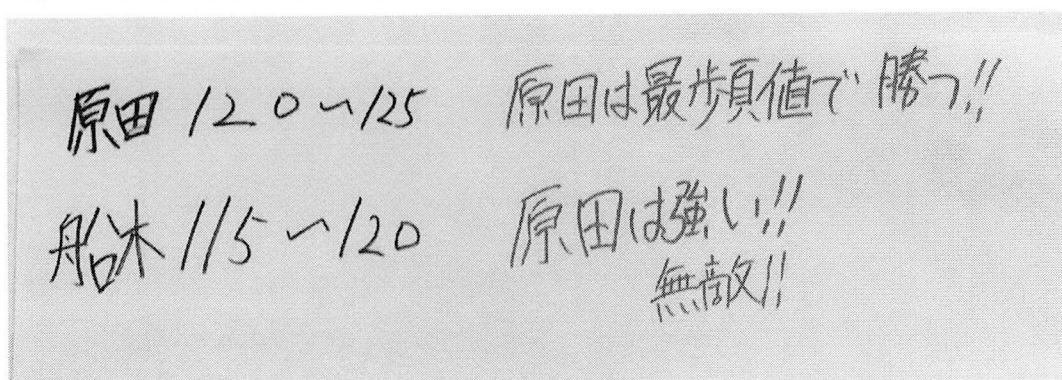 原田 120～125
原田は最頻値で 勝つ!!
船木 115～120
原田は強い!!
無敵!!